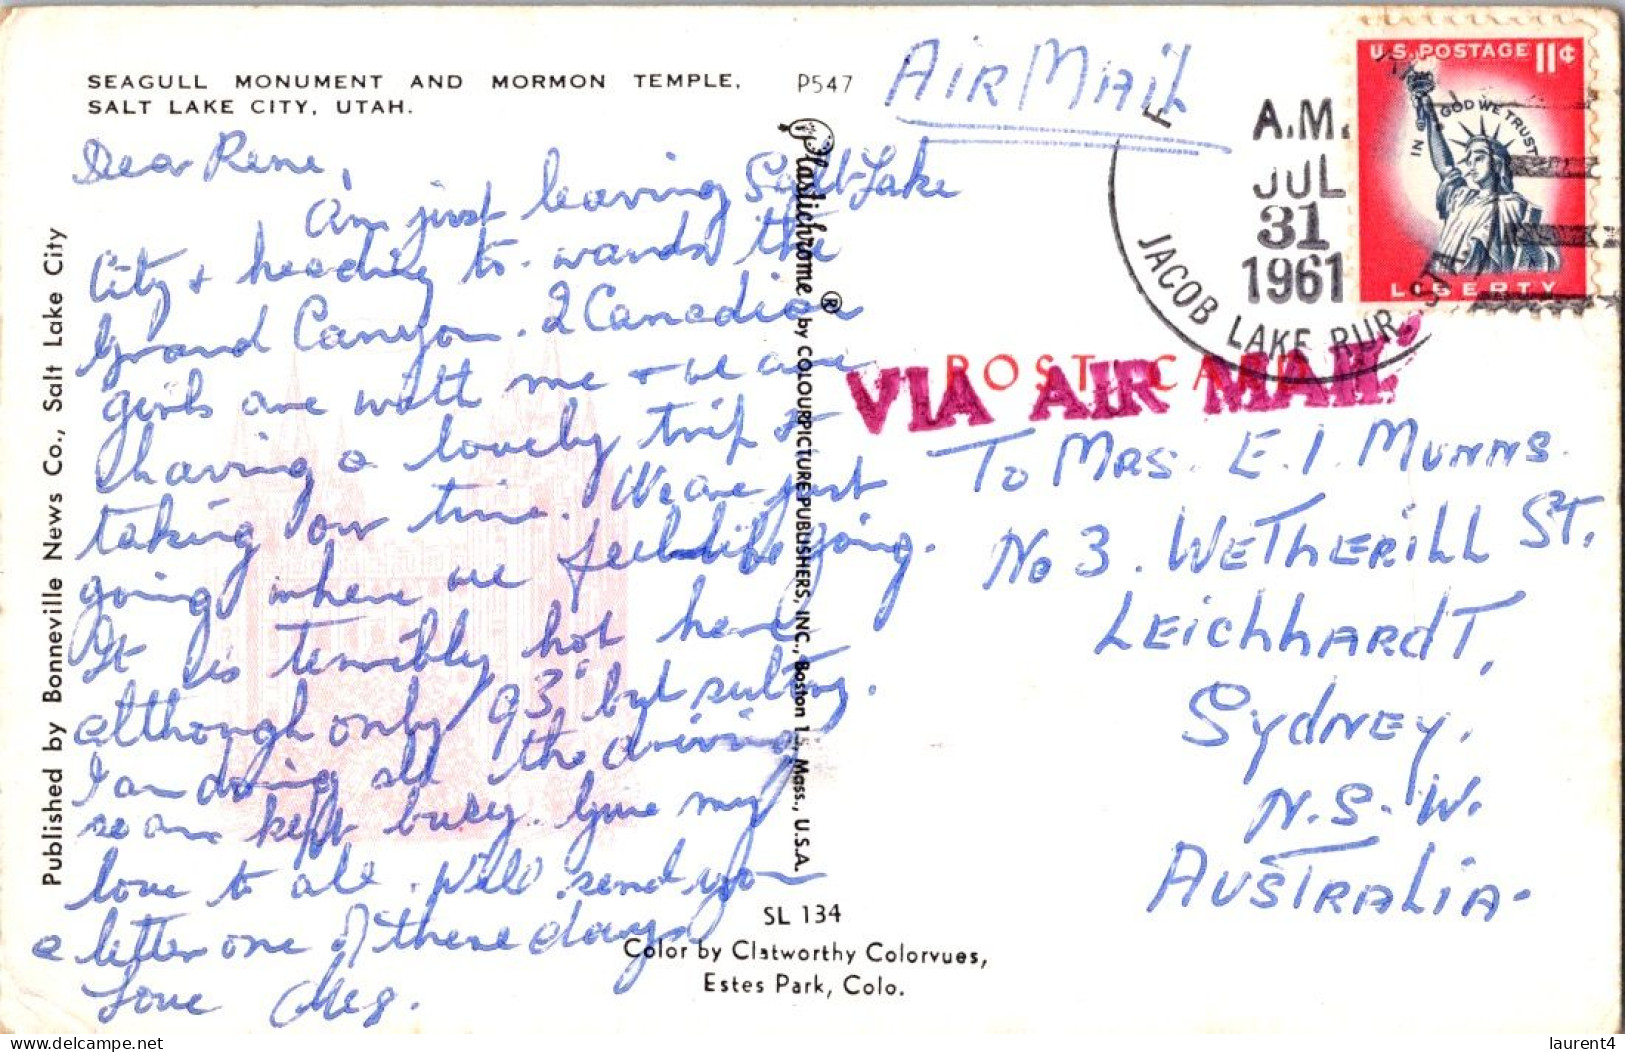 SEAGULL MONUMENT AND MORMON TEMPLE,
SALT LAKE CITY, UTAH.
P547
Dear Rene,
Am just leaving Salt Lake
City & heading to-wards the
Grand Canyon. 2 Canadian
girls are with me & we are
having a lovely trip &
taking our time. We are just
going where we feel like going.
It is terribly hot here
although only 93° but sulting.
I am doing all the driving
so am kept busy. Give my
love to all. Will send you
a letter one of these days
Love Meg.
Published by Bonneville News Co., Salt Lake City
Plastichrome ® by COLOURPICTURE PUBLISHERS, INC., Boston 15, Mass., U.S.A.
SL 134
Color by Clatworthy Colorvues,
Estes Park, Colo.
AIR MAIL
A.M.
JUL
31
1961
JACOB LAKE RUR. STA.
U.S. POSTAGE 11¢
IN GOD WE TRUST
LIBERTY
POST CARD
VIA AIR MAIL
To MRS. E. I. MUNNS.
No 3. WETHERILL ST,
LEICHHARDT,
SYDNEY,
N.S.W.
AUSTRALIA.
delcampe.net
laurent4